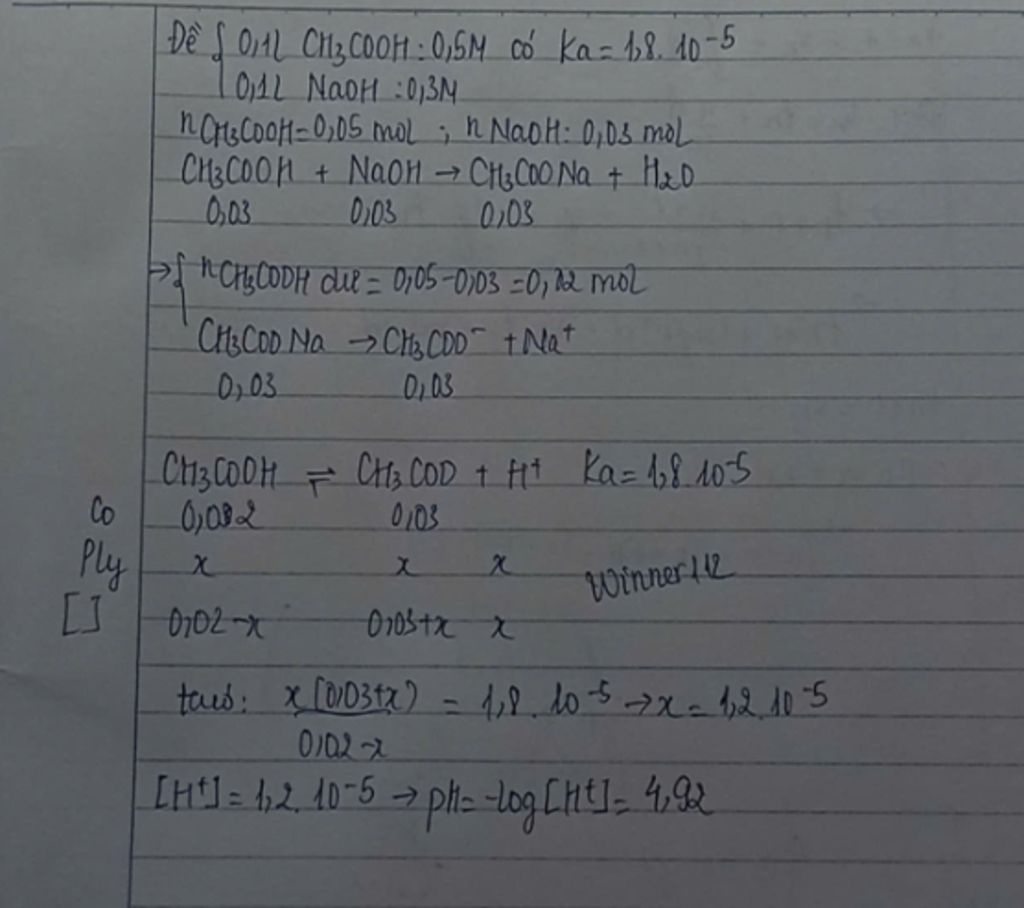 Đề { 0,1l CH3COOH : 0,5M có Ka = 1,8. 10-5
0,1l NaOH : 0,3M
nCH3COOH = 0,05 mol ; n NaOH: 0,03 mol
CH3COOH + NaOH → CH3COONa + H2O
0,03 0,03 0,03
⇒ { nCH3COOH dư = 0,05-0,03 = 0,02 mol
CH3COONa → CH3COO- + Na+
0,03 0,03
CH3COOH ⇌ CH3COO + H+ Ka = 1,8 10-5
Co 0,02 0,03
Ply x x x
Winner112
[] 0,02-x 0,03+x x
ta có: x(0,03+x) / 0,02-x = 1,8. 10-5 → x = 1,2. 10-5
[H+] = 1,2. 10-5 → pH = -log[H+] = 4,92